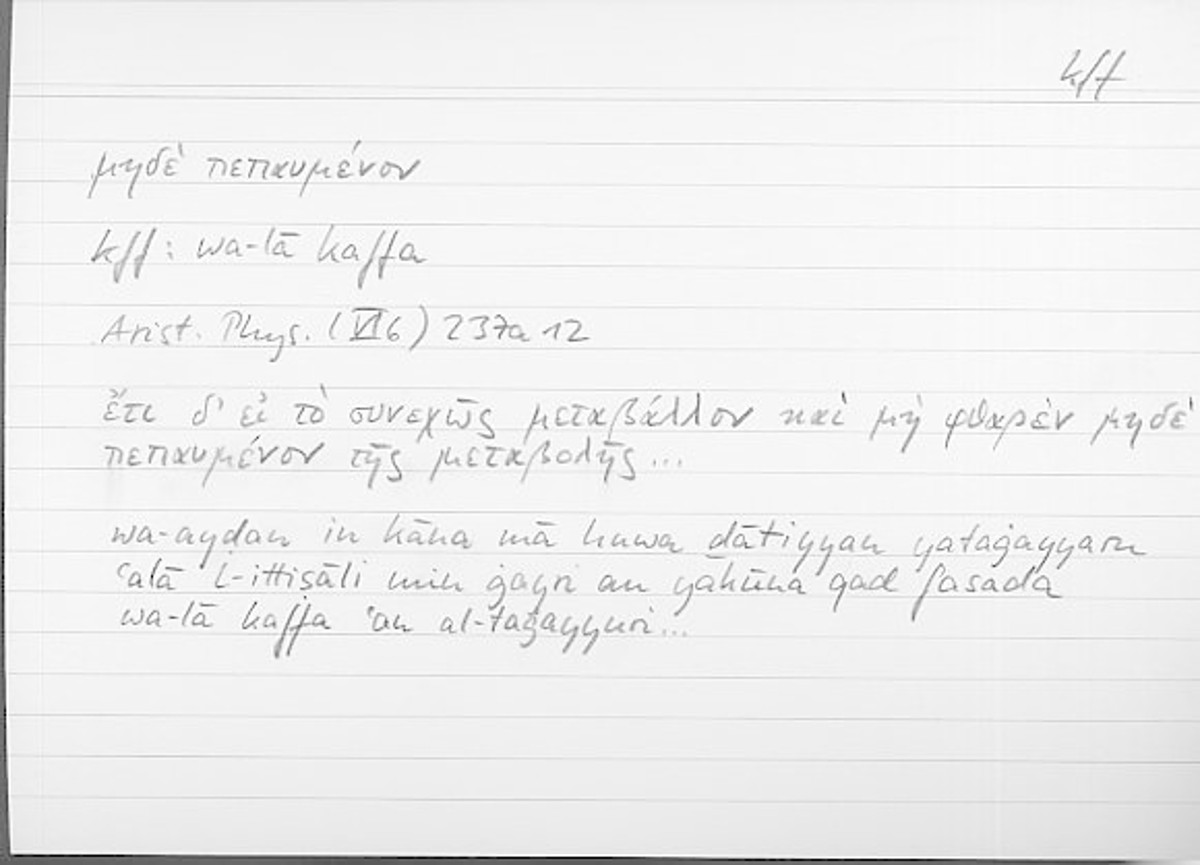 kff
μηδὲ πεπαυμένον
kff: wa-lā kaffa
Arist. Phys. (VI 6) 237a 12
ἔτι δ' εἰ τὸ συνεχῶς μεταβάλλον καὶ μὴ φθαρὲν μηδὲ
πεπαυμένον τῆς μεταβολῆς ...
wa-ayḍan in kāna mā huwa ḏātiyyan yataġayyaru
ʿalā l-ittiṣāli min ġayri an yakūna qad fasada
wa-lā kaffa ʿan al-taġayyuri...